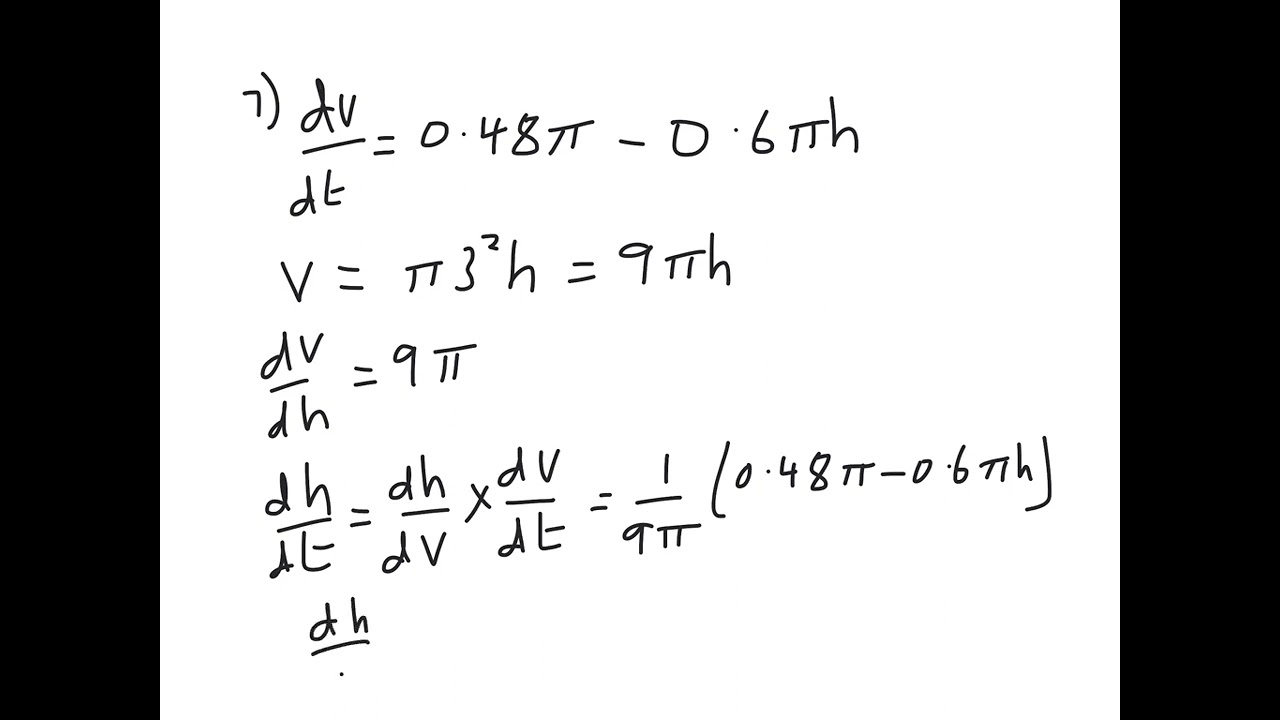 7) dv/dt = 0.48π - 0.6πh
V = π3²h = 9πh
dV/dh = 9π
dh/dt = dh/dV × dV/dt = 1/9π (0.48π - 0.6πh)
dh